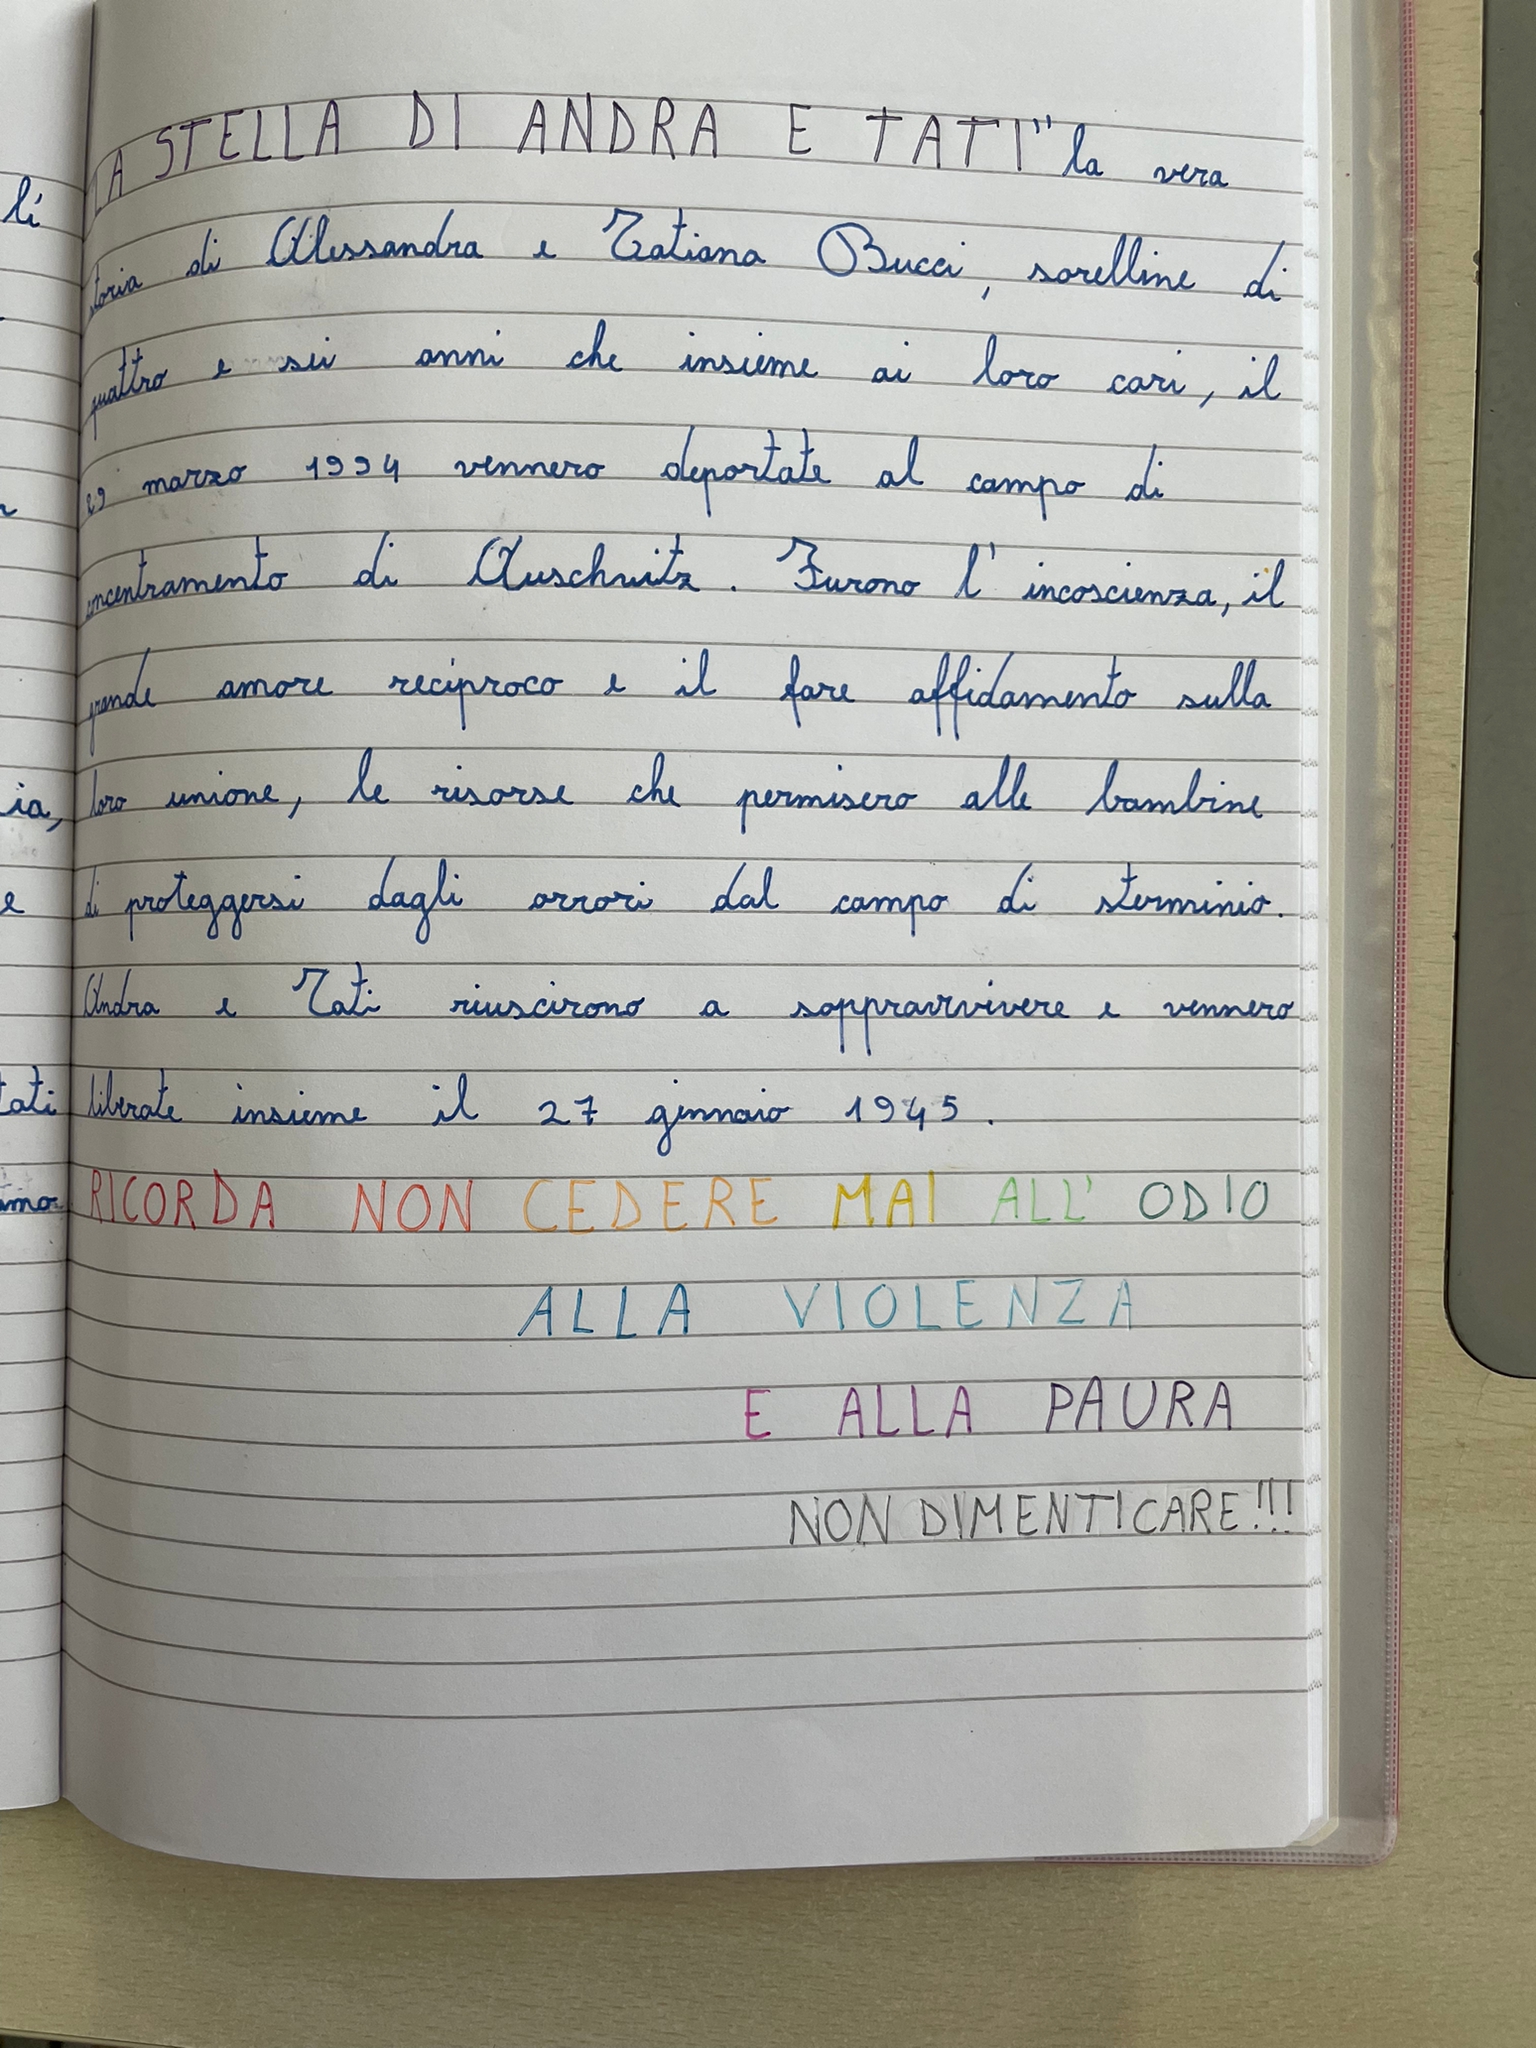 lì
ia,
e
tati
amo
LA STELLA DI ANDRA E TATI" la vera
storia di Alessandra e Tatiana Bucci, sorelline di
quattro e sei anni che insieme ai loro cari, il
29 marzo 1994 vennero deportate al campo di
concentramento di Auschwitz. Furono l'incoscienza, il
grande amore reciproco e il fare affidamento sulla
loro unione, le risorse che permisero alle bambine
di proteggersi dagli orrori dal campo di sterminio.
Andra e Tati riuscirono a soppravvivere e vennero
liberate insieme il 27 gennaio 1945.
RICORDA NON CEDERE MAI ALL'ODIO
ALLA VIOLENZA
E ALLA PAURA
NON DIMENTICARE!!!